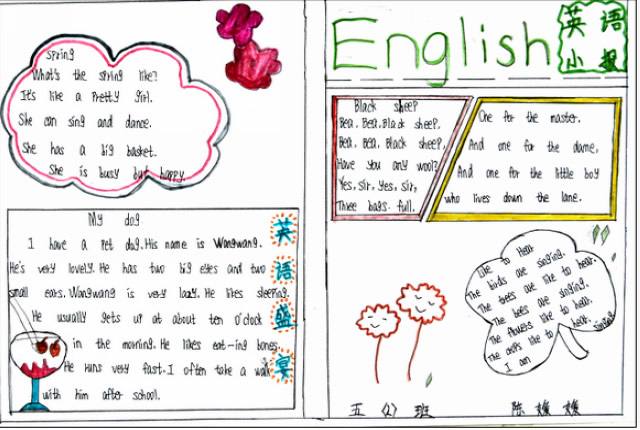 spring
What's the spring like?
It's like a pretty girl.
She can sing and dance.
She has a big basket.
She is busy but happy.
My dog
I have a pet dog. His name is Wangwang.
He's very lovely. He has two big eyes and two
small ears. Wangwang is very lazy. He likes sleeping.
He usually gets up at about ten o'clock
in the morning. He likes eat-ing bones.
He runs very fast. I often take a walk
with him after school.
英语盛宴
English
英语
小报
Black sheep
Baa, Baa, Black sheep,
Baa, Baa, Black sheep,
Have you any wool?
Yes, sir, yes, sir,
Three bags full.
One for the master.
And one for the dame,
And one for the little boy
who lives down the lane.
Like to Hear
The birds are singing.
The trees are like to hear.
The bees are singing.
The flowers like to hear.
The like to hear.
I am
五 (2) 班
陈